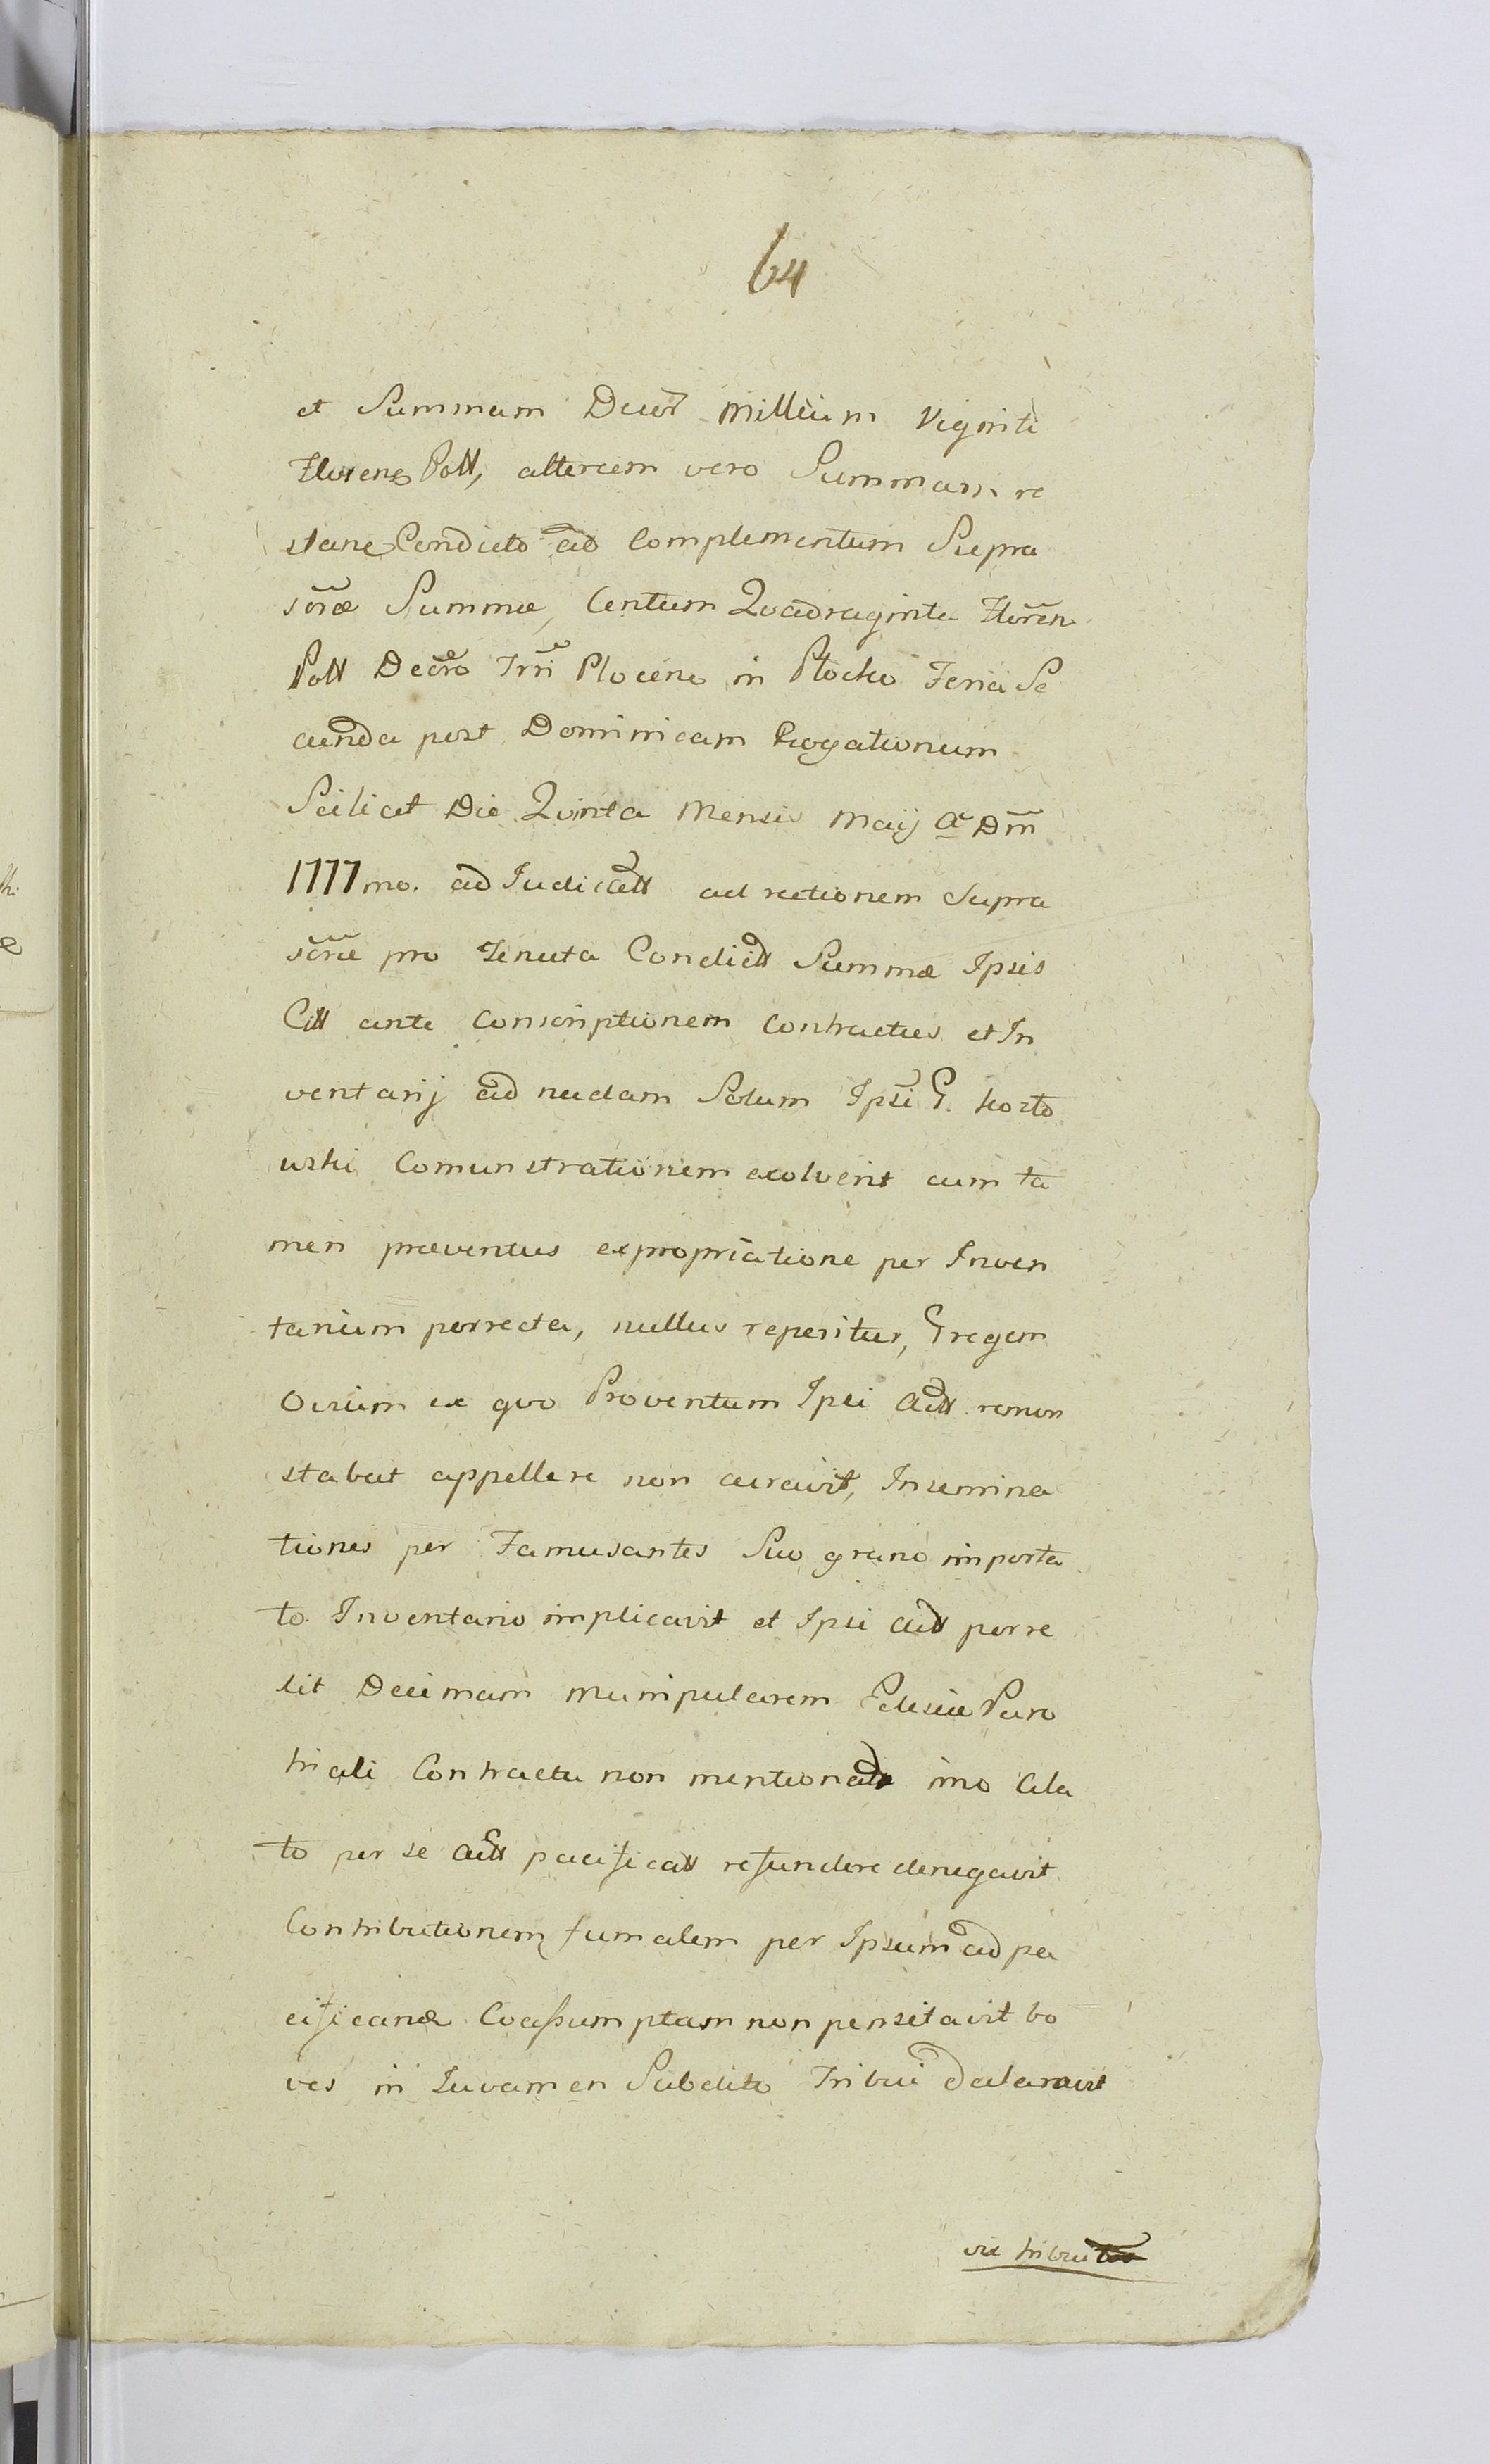 64
et Summam Duor Millium Viginti
Floren Poll, alteram vero Summam re
stan Condicto ad Complementum Supra
scræ Summæ, Centum Quadraginta Floren
Poll Decro Trri Plocen in Plocko Feria Se
cunda post Dominicam Rogationum
Scilicet Die Quinta Mensis Maij Ao Dni
1777mo. ad Judicatt ad rationem Supra
scræ pro Tenuta Condictt Summæ Ipsis
Citt ante Conscriptionem Contractus et In
ventarij ad nudam Solum Ipsi G. Kozło
wski Comunstrationem exolverit cum ta
men proventus expropriatione per Inven
tarium porrecta, nullus reperitur, Gregem
Ovium ex quo Proventum Ipsi Actt remon
strabat appellere non curavit, Insemina
tiones per Famusantes Suo grano importa
to Inventario implicavit et Ipsi Actt porre
xit Decimam Manipularem Eclesiæ Paro
hiali Contractu non mentionat imo Cela
to per se Actt pacificatt refundere denegavit
Contributionem fumalem per Ipsum ad pa
cificand Coassumptam non pensitavit bo
ves in Juvamen Subdito Tribui declaravit
vix tribui